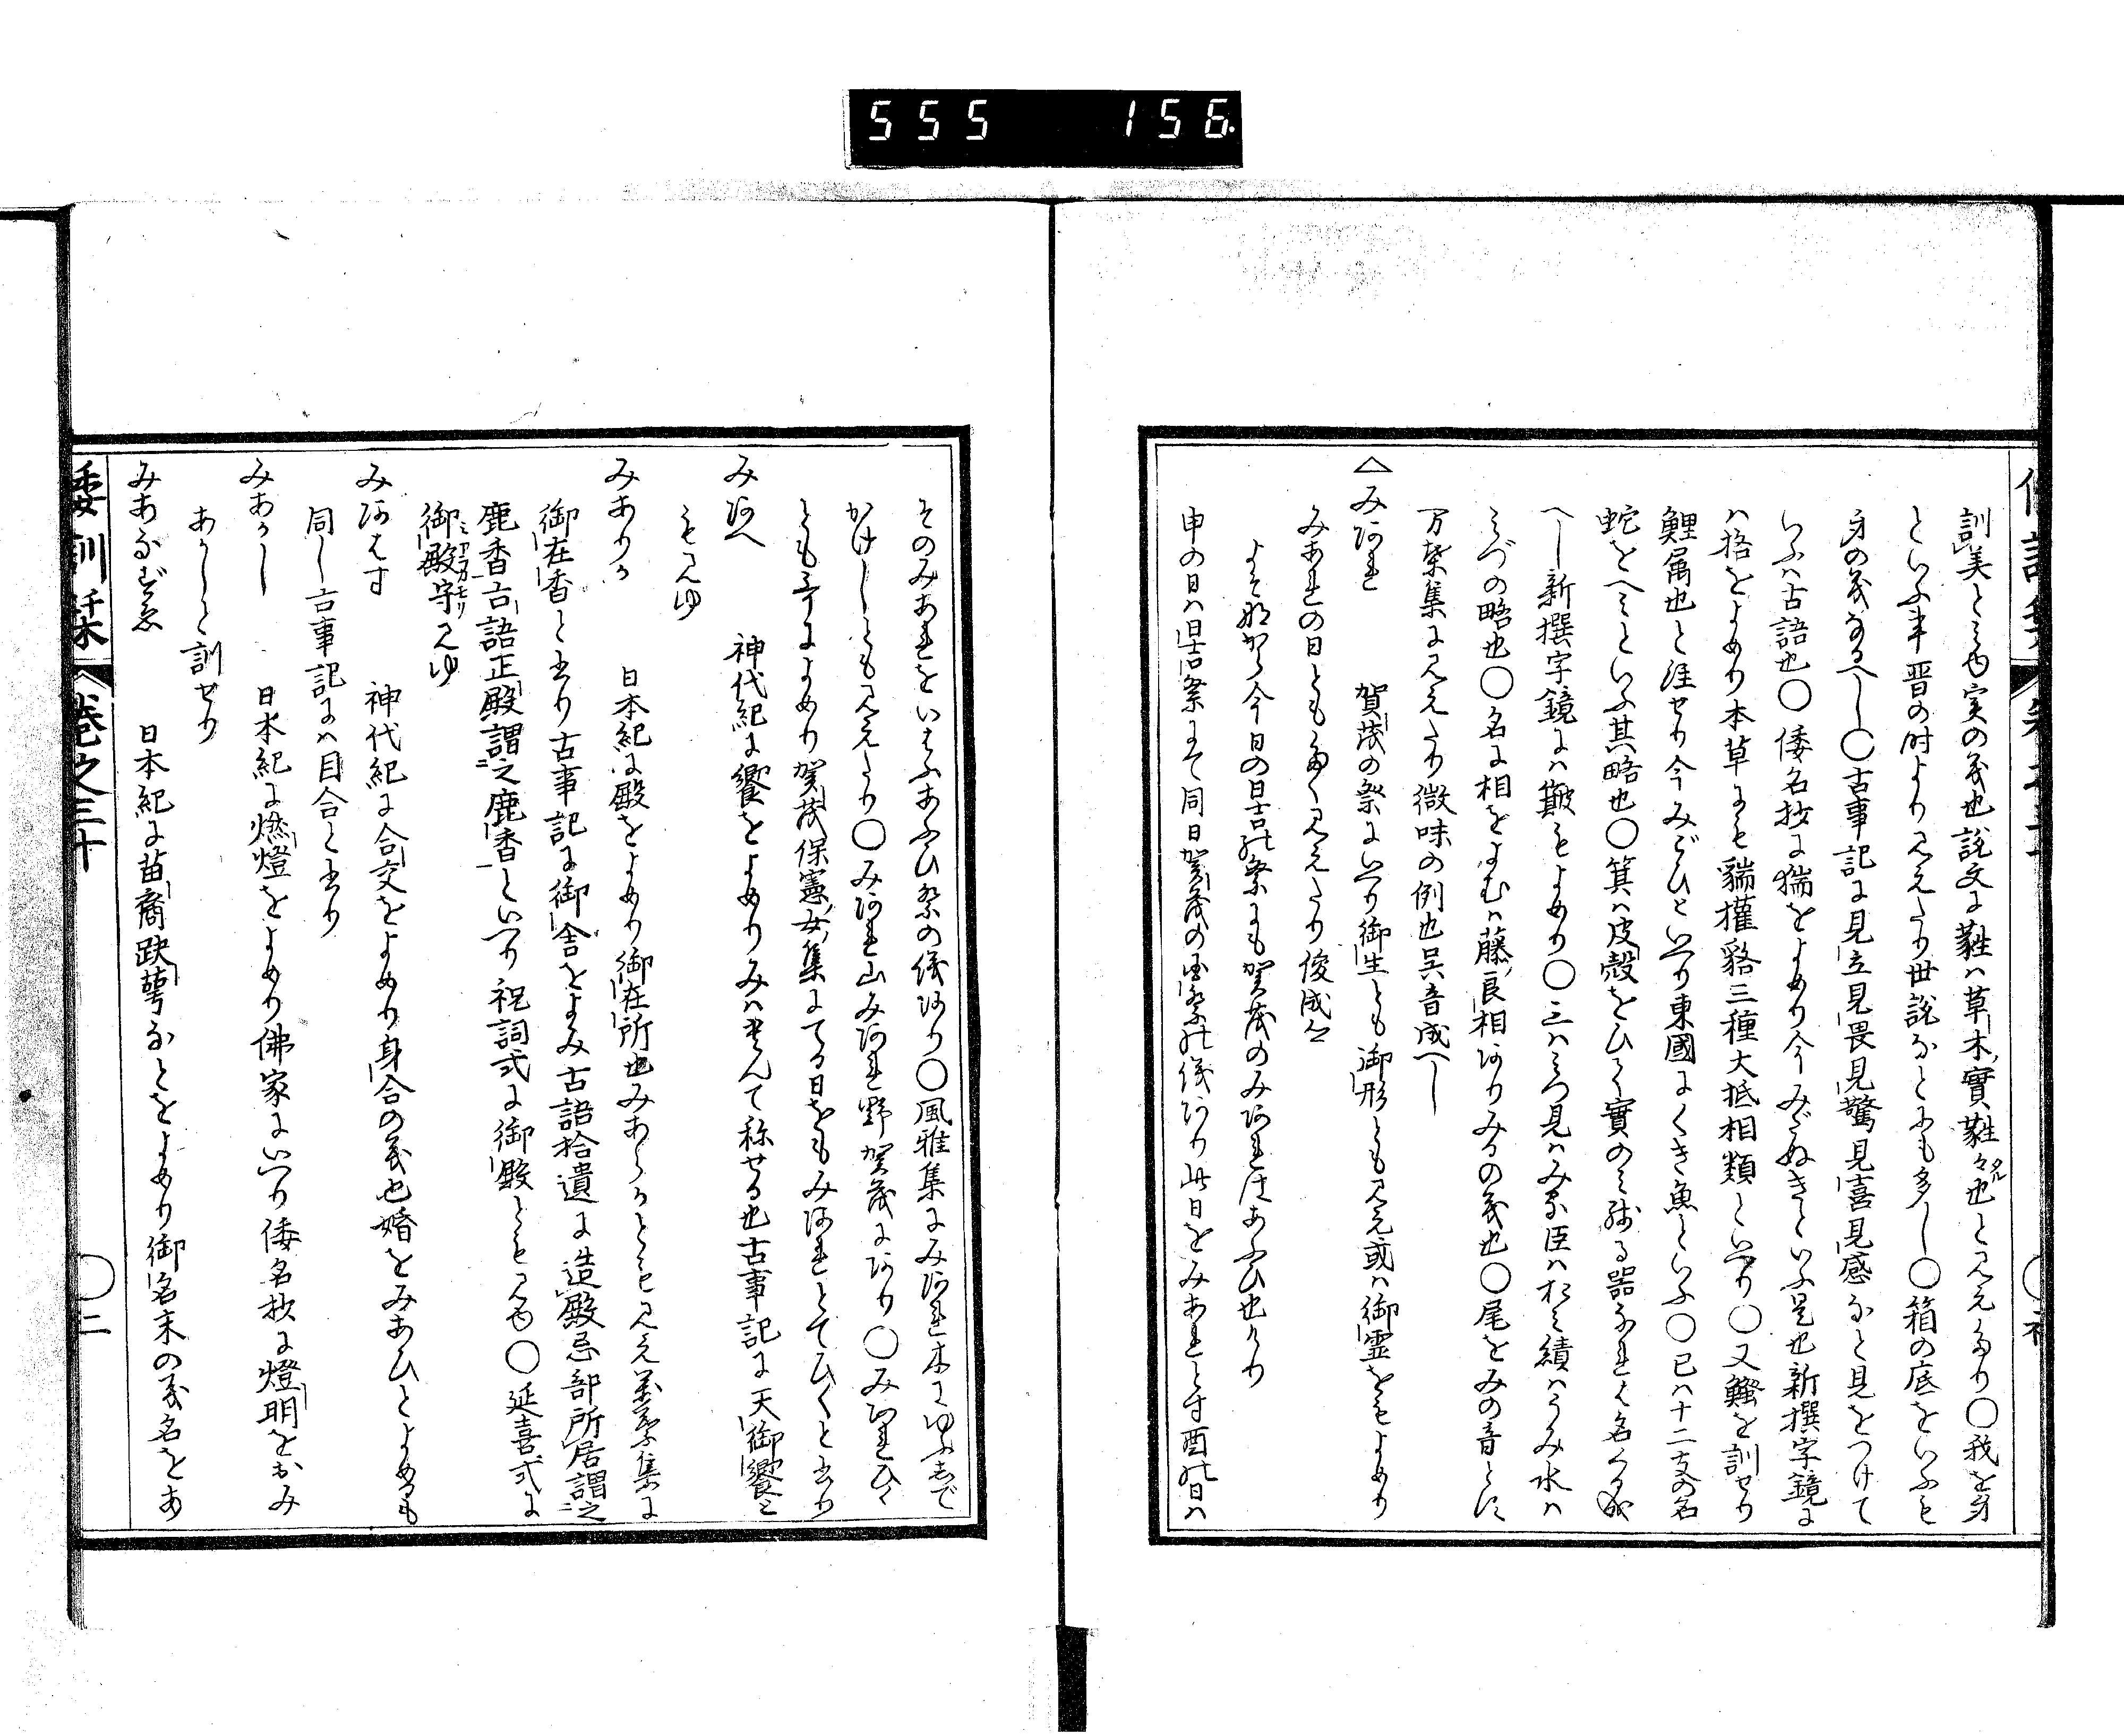 555 156.
訓美とミゆ実の義也説文に蘳ハ草木實蘳々也と見えたり○我を身
といふ事晋の時より見えたり世説なとにも多し○箱の底をいふも
身の義なるへし○古事記に見立見畏見驚見喜見感なと見をつけて
いふハ古語也○倭名抄に猯をよめり今みだぬきといふ是也新撰字鏡に
ハ狢をよめり本草にも貒獾貉三種大抵相類といへり○又鰠を訓せり
鯉属也と注せり今みごひといへり東國にくき魚といふ○巳ハ十二支の名
蛇をへミといふ其略也○箕ハ皮殻をひて實のミ残る器なれは名くる成
へし新撰字鏡にハ簸もよめり○三ハミつ見ハみる臣ハおミ績ハうみ水ハ
ミづの略也○名に相をよむハ藤良相ありみるの義也○尾をみの音とす
万葉集に見えたり微味の例也呉音成へし
△みあれ 賀茂の祭にいへり御生とも御形とも見え或ハ御霊をもよめり
みあれの日とも多く見えたり俊成卿
よそなから今日の日吉の祭にも賀茂のみあれはあふひ也けり
申の日ハ日吉祭にて同日賀茂の国祭の儀あり此日をみあれとす酉の日ハ
そのみあれをいはふあふひ祭の儀あり○風雅集にみあれ木にゆふしで
かけしとも見えたり○みあれ山みあれ野賀茂にあり○みあれひく
とも哥によめり賀茂保憲女集にてる日をもみあれとてひくと出り
みあへ 神代紀に饗をよめりみハ尊んて称せる也古事記に天御饗と
も見ゆ
みあらか 日本紀に殿をよめり御在所也みあらかとも見え萬葉集に
御在香と出り古事記に御舎をよみ古語拾遺に造殿忌部所居謂之
鹿香古語正殿謂之鹿香といへり祝詞式に御殿とも見ゆ○延喜式に
御殿守見ゆ
みあはす 神代紀に合交をよめり身合の義也婚をみあひとよめるも
同し古事記にハ目合と出り
みあかし 日本紀に燃燈をよめり佛家にいへり倭名抄に燈明をおみ
あかしと訓せり
みあなずゑ 日本紀に苗裔趺萼なとをよめり御名末の義名をあ
倭訓栞 巻之三十 ○二